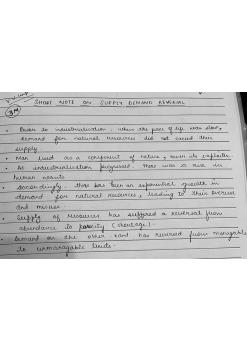 V.V. imp
3M
SHORT NOTE ON SUPPLY DEMAND REVERSAL
• Prior to industrialisation, when the pace of life was slow,
demand for natural resources did not exceed their
supply.
• Man lived as a component of nature, never its exploiter
• As industrialisation progressed, there was a rise in
human wants
• Accordingly, there has been an exponential growth in
demand for natural resources, leading to their overuse
and misuse
• Supply of resources has suffered a reversal from
abundance to (shortage)
• Demand on the other hand has reversed from manageable
to unmanageable limits.